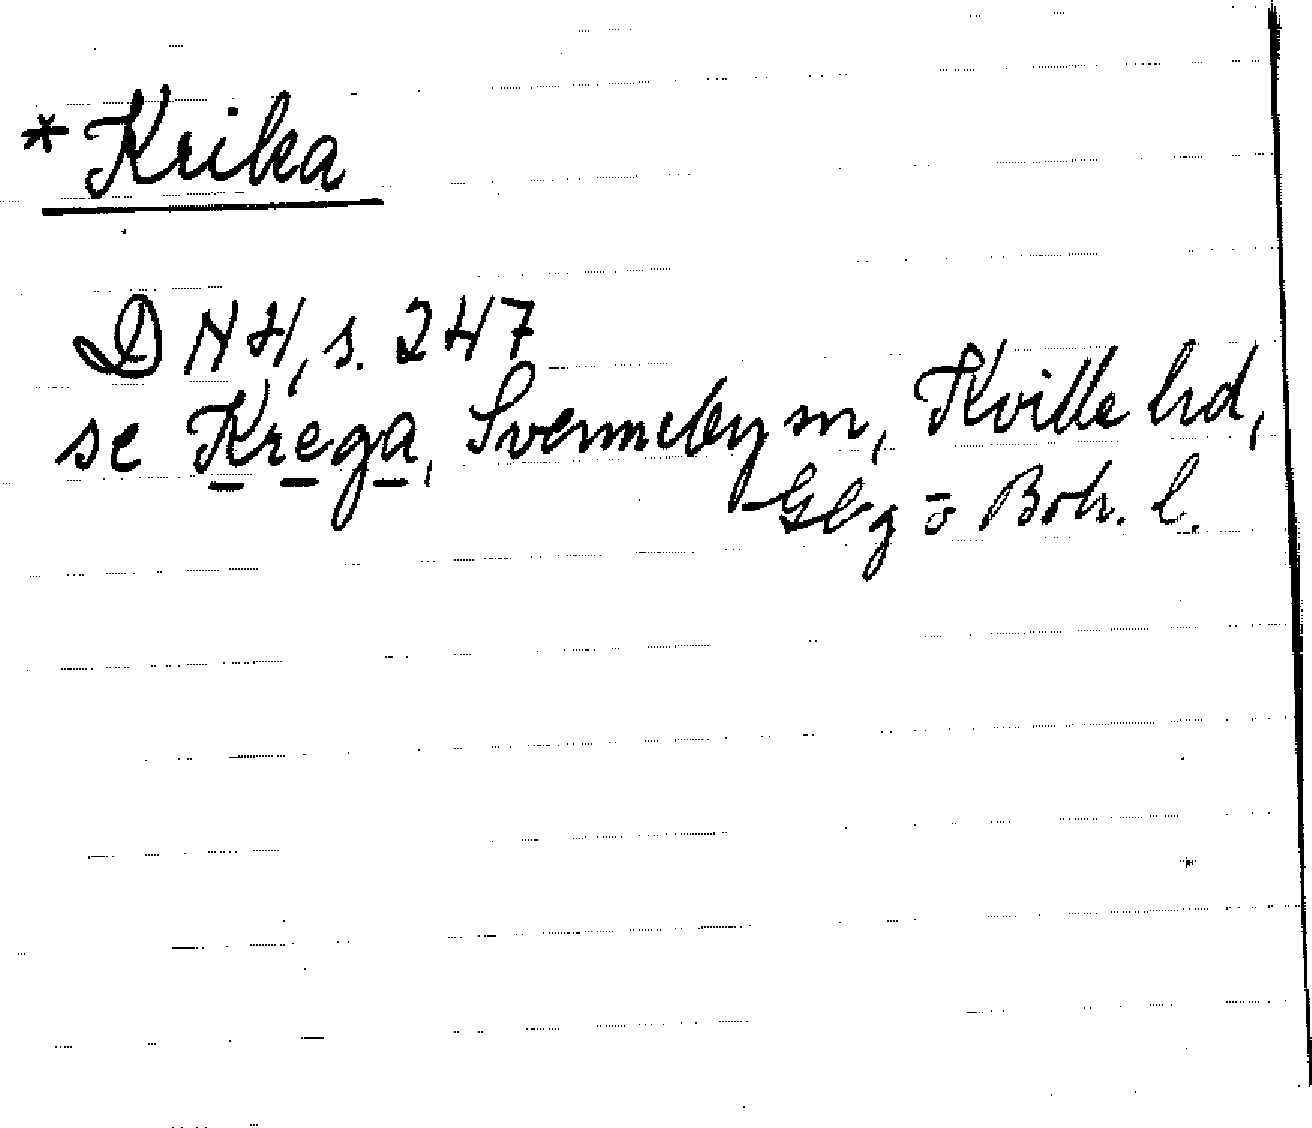 *Krika
DNH, s. 247
se Krega, Svenneby sn, Kville hd,
Gbg o Boh. l.